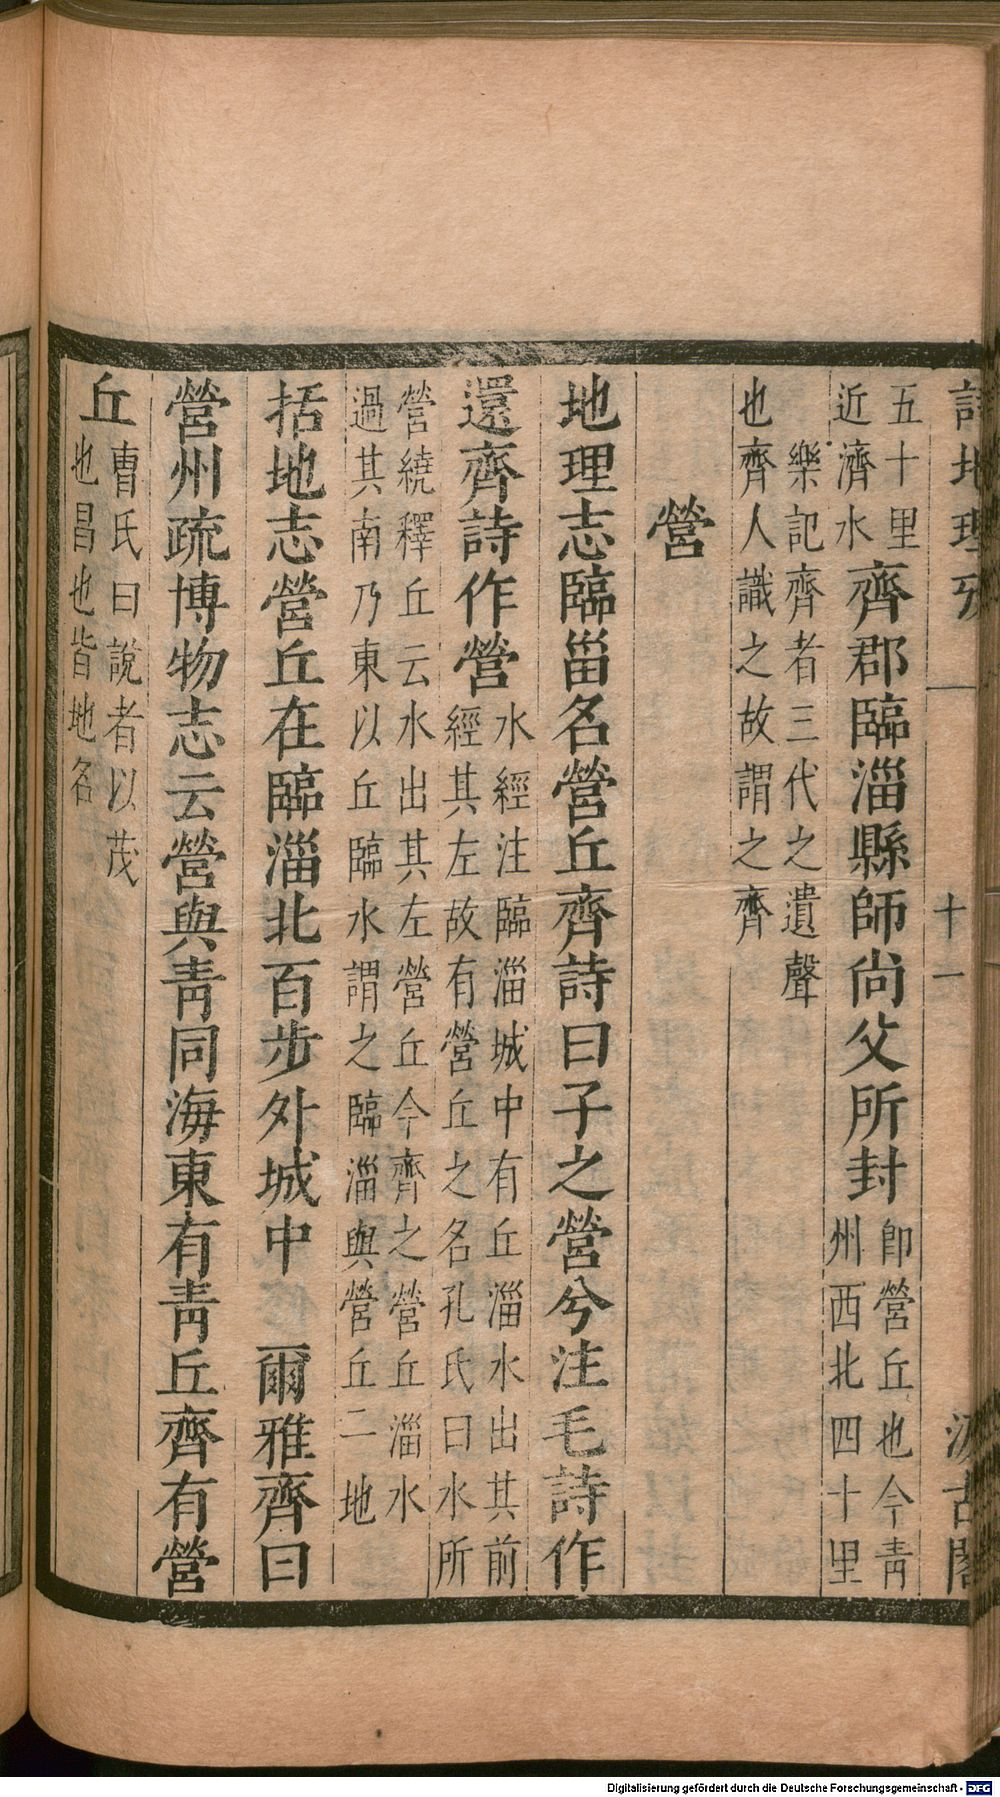 五十里
近濟水
齊郡臨淄縣師尚父所封
卽營丘也今靑
州西北四十里
樂記齊者三代之遺聲
也齊人識之故謂之齊
營
地理志臨甾名營丘齊詩曰子之營兮注毛詩作
還齊詩作營
水經注臨淄城中有丘淄水出其前
經其左故有營丘之名孔氏曰水所
營繞釋丘云水出其左營丘今齊之營丘淄水
過其南乃東以丘臨水謂之臨淄與營丘二地
括地志營丘在臨淄北百步外城中 爾雅齊曰
營州疏博物志云營與靑同海東有靑丘齊有營
丘
曹氏曰說者以茂
也昌也皆地名
詩地理攷
十一
汲古閣
Digitalisierung gefördert durch die Deutsche Forschungsgemeinschaft - DFG